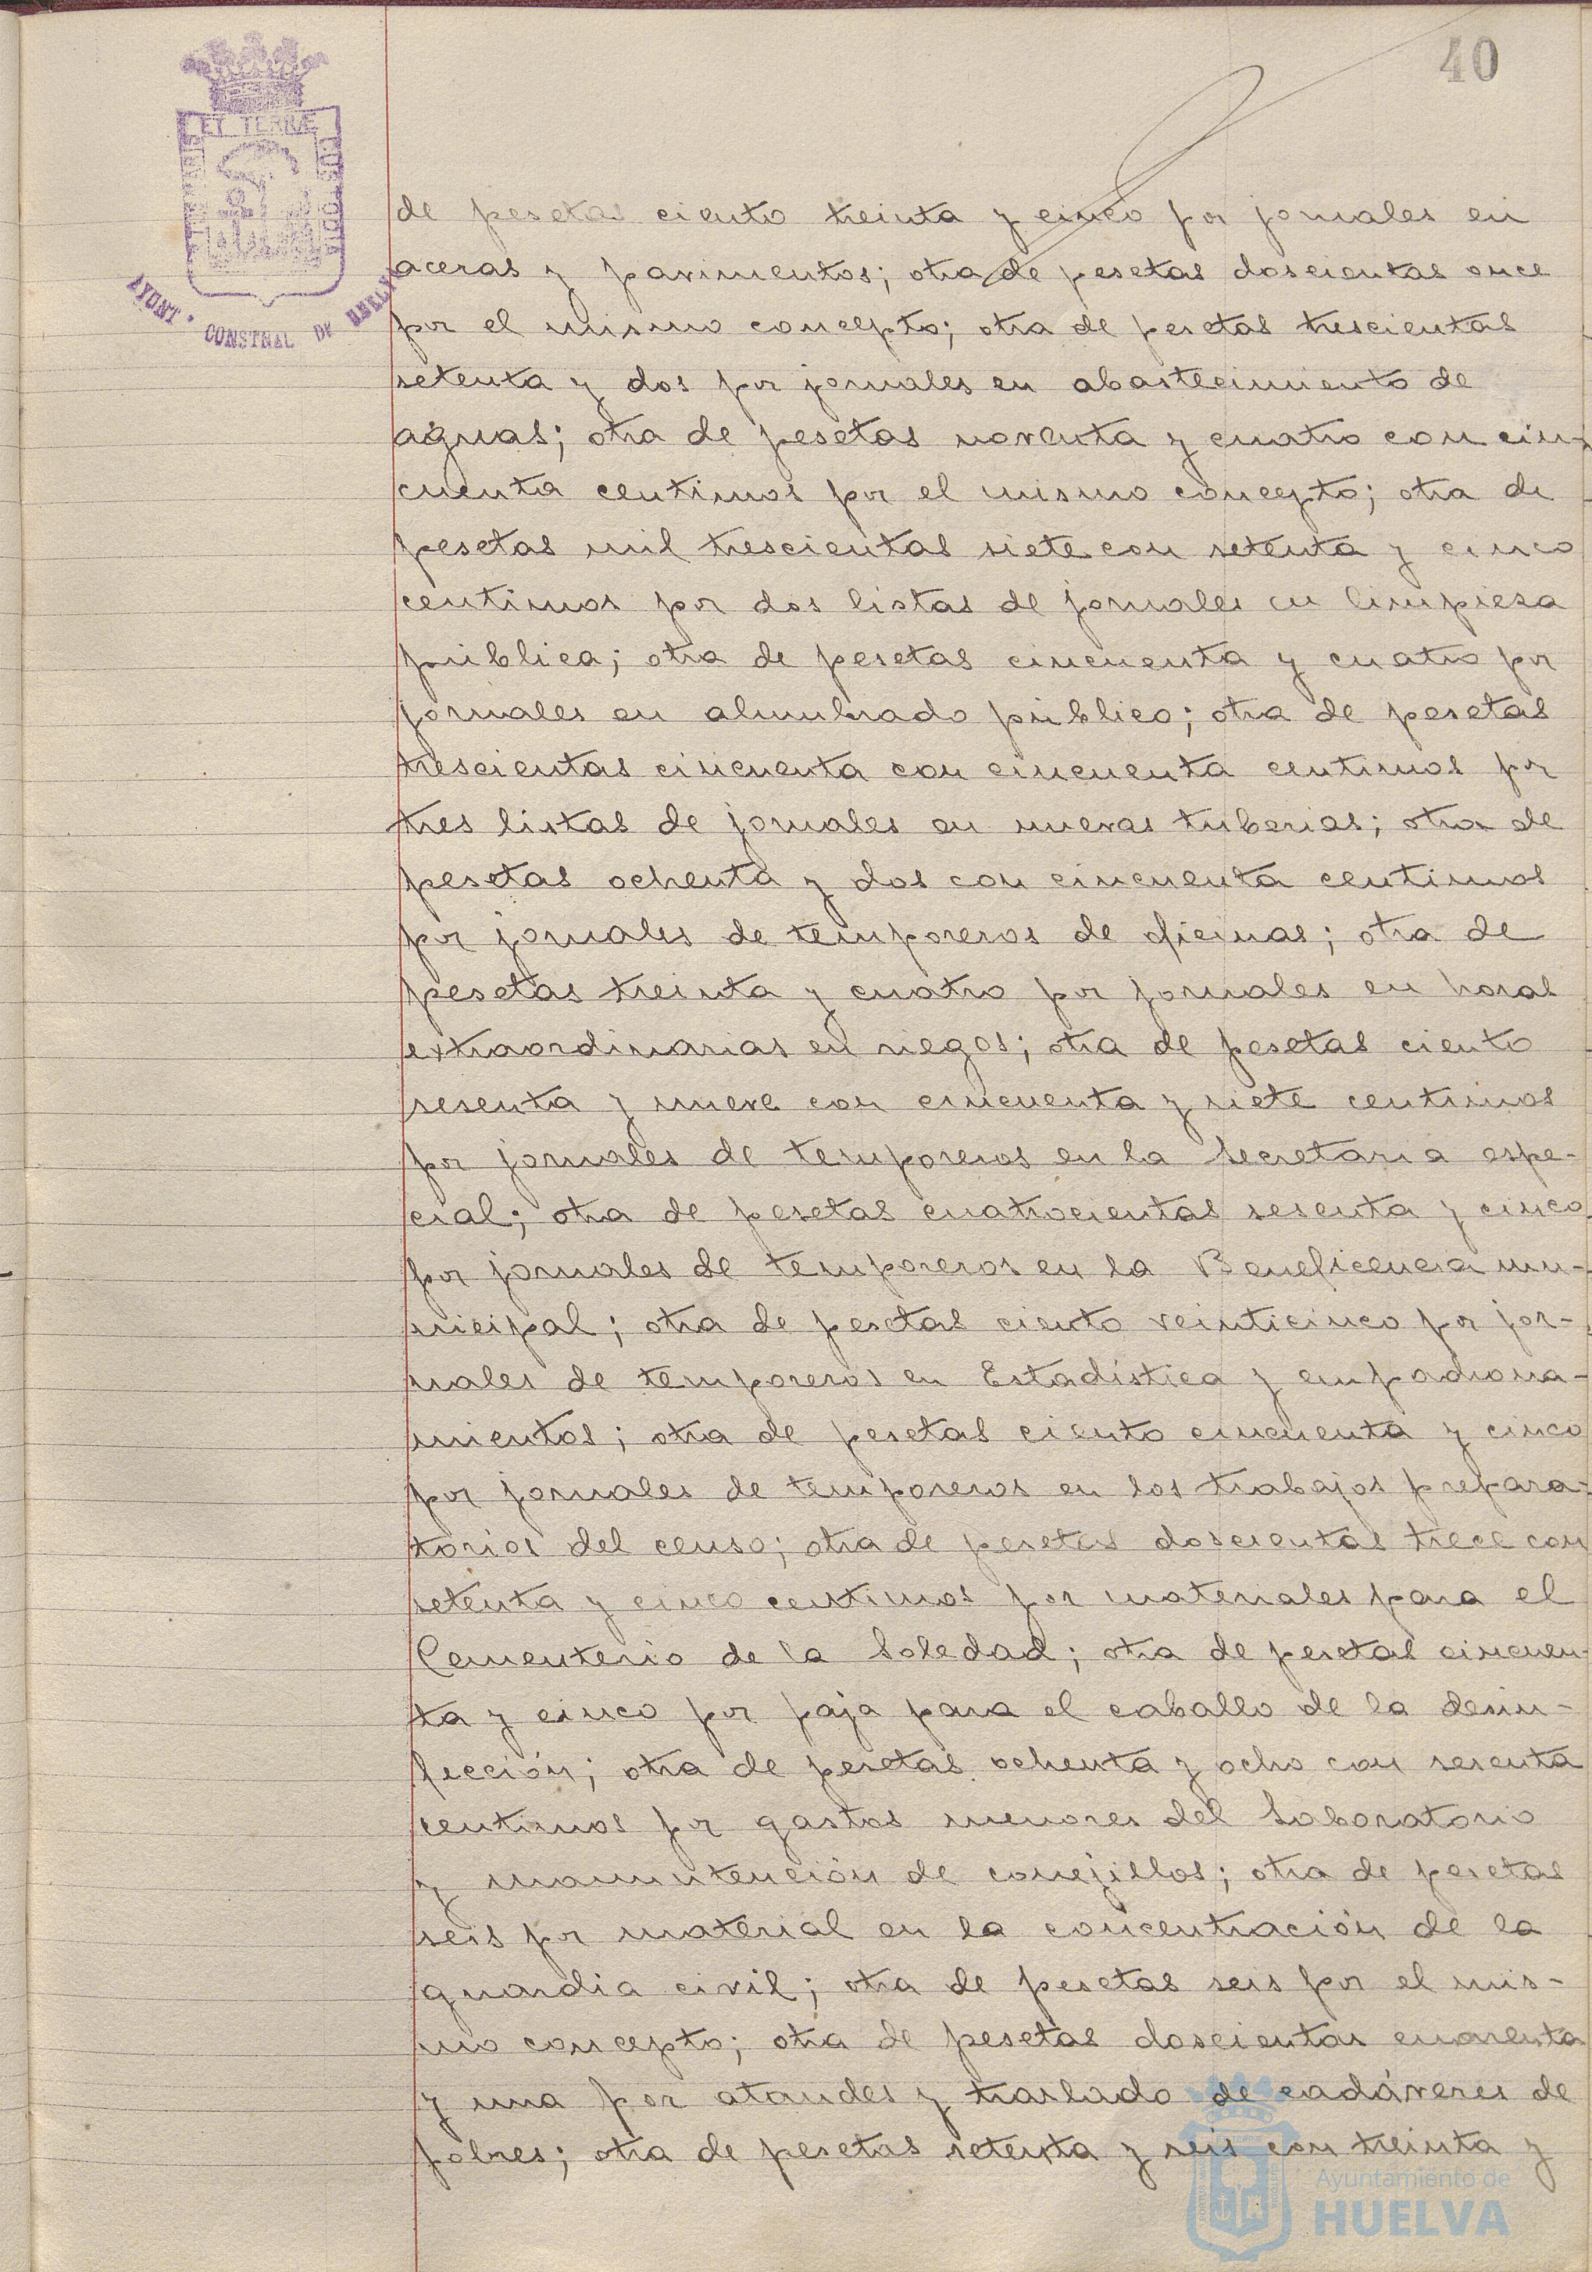 40
ET TERRÆ
AYUNT · CONSTNAL DE HUELVA
de pesetas ciento treinta y cinco por jornales en
aceras y pavimentos; otra de pesetas doscientas once
por el mismo concepto; otra de pesetas trescientas
setenta y dos por jornales en abastecimiento de
aguas; otra de pesetas noventa y cuatro con cin-
cuenta centimos por el mismo concepto; otra de
pesetas mil trescientas siete con setenta y cinco
centimos por dos listas de jornales en limpiesa
pública; otra de pesetas cincuenta y cuatro por
jornales en alumbrado público; otra de pesetas
trescientas cincuenta con cincuenta centimos por
tres listas de jornales en nuevas tuberias; otra de
pesetas ochenta y dos con cincuenta centimos
por jornales de temporeros de oficinas; otra de
pesetas treinta y cuatro por jornales en horas
extraordinarias en riegos; otra de pesetas ciento
sesenta y nueve con cincuenta y siete centimos
por jornales de temporeros en la Secretaria espe-
cial; otra de pesetas cuatrocientas sesenta y cinco
por jornales de temporeros en la Beneficencia mu-
nicipal; otra de pesetas ciento veinticinco por jor-
nales de temporeros en Estadística y empadrona-
mientos; otra de pesetas ciento cincuenta y cinco
por jornales de temporeros en los trabajos prepara-
torios del censo; otra de pesetas doscientas trece con
setenta y cinco centimos por materiales para el
Cementerio de la Soledad; otra de pesetas cincuen-
ta y cinco por paja para el caballo de la desin-
fección; otra de pesetas ochenta y ocho con sesenta
centimos por gastos menores del Laboratorio
y manuntención de conejillos; otra de pesetas
seis por material en la concentración de la
guardia civil; otra de pesetas seis por el mis-
mo concepto; otra de pesetas doscientas cuarenta
y una por ataudes y traslado de cadáveres de
pobres; otra de pesetas setenta y seis con treinta y
Ayuntamiento de
HUELVA